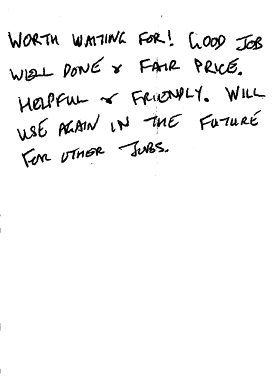 WORTH WAITING FOR! GOOD JOB
WELL DONE & FAIR PRICE.
HELPFUL & FRIENDLY. WILL
USE AGAIN IN THE FUTURE
FOR OTHER JOBS.